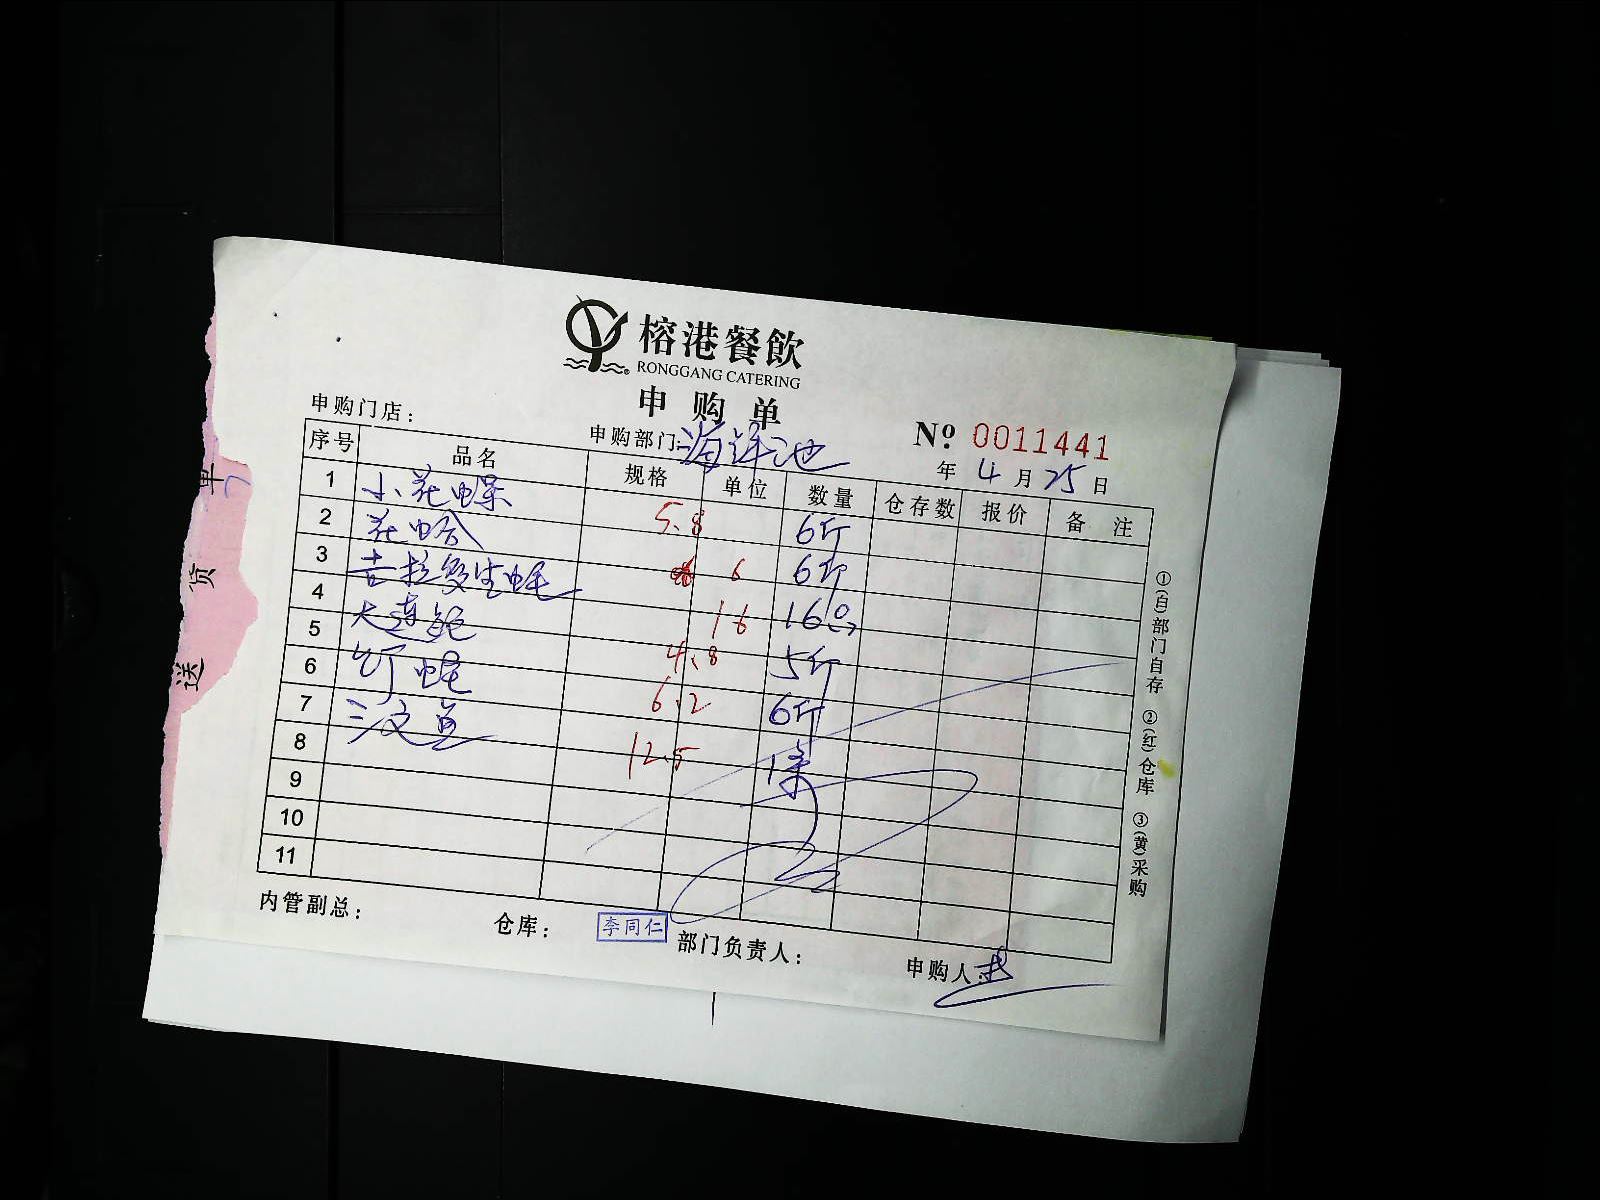 榕港餐飲
RONGGANG CATERING
申购单
申购门店：
申购部门：海洋池
№ 0011441
年 4 月 25 日
序号 品名 规格 单位 数量 仓存数 报价 备注
1 小花螺 5.8 6斤
2 花蛤 6 6斤
3 吉拉多生蚝 16 16只
4 大连鲍 4.8 5斤
5 蚝 6.2 6斤
6 三文鱼 12.5 1条
7
8
9
10
11
①(白)部门自存 ②(红)仓库 ③(黄)采购
内管副总： 仓库： 李同仁 部门负责人： 申购人：
送 货 单